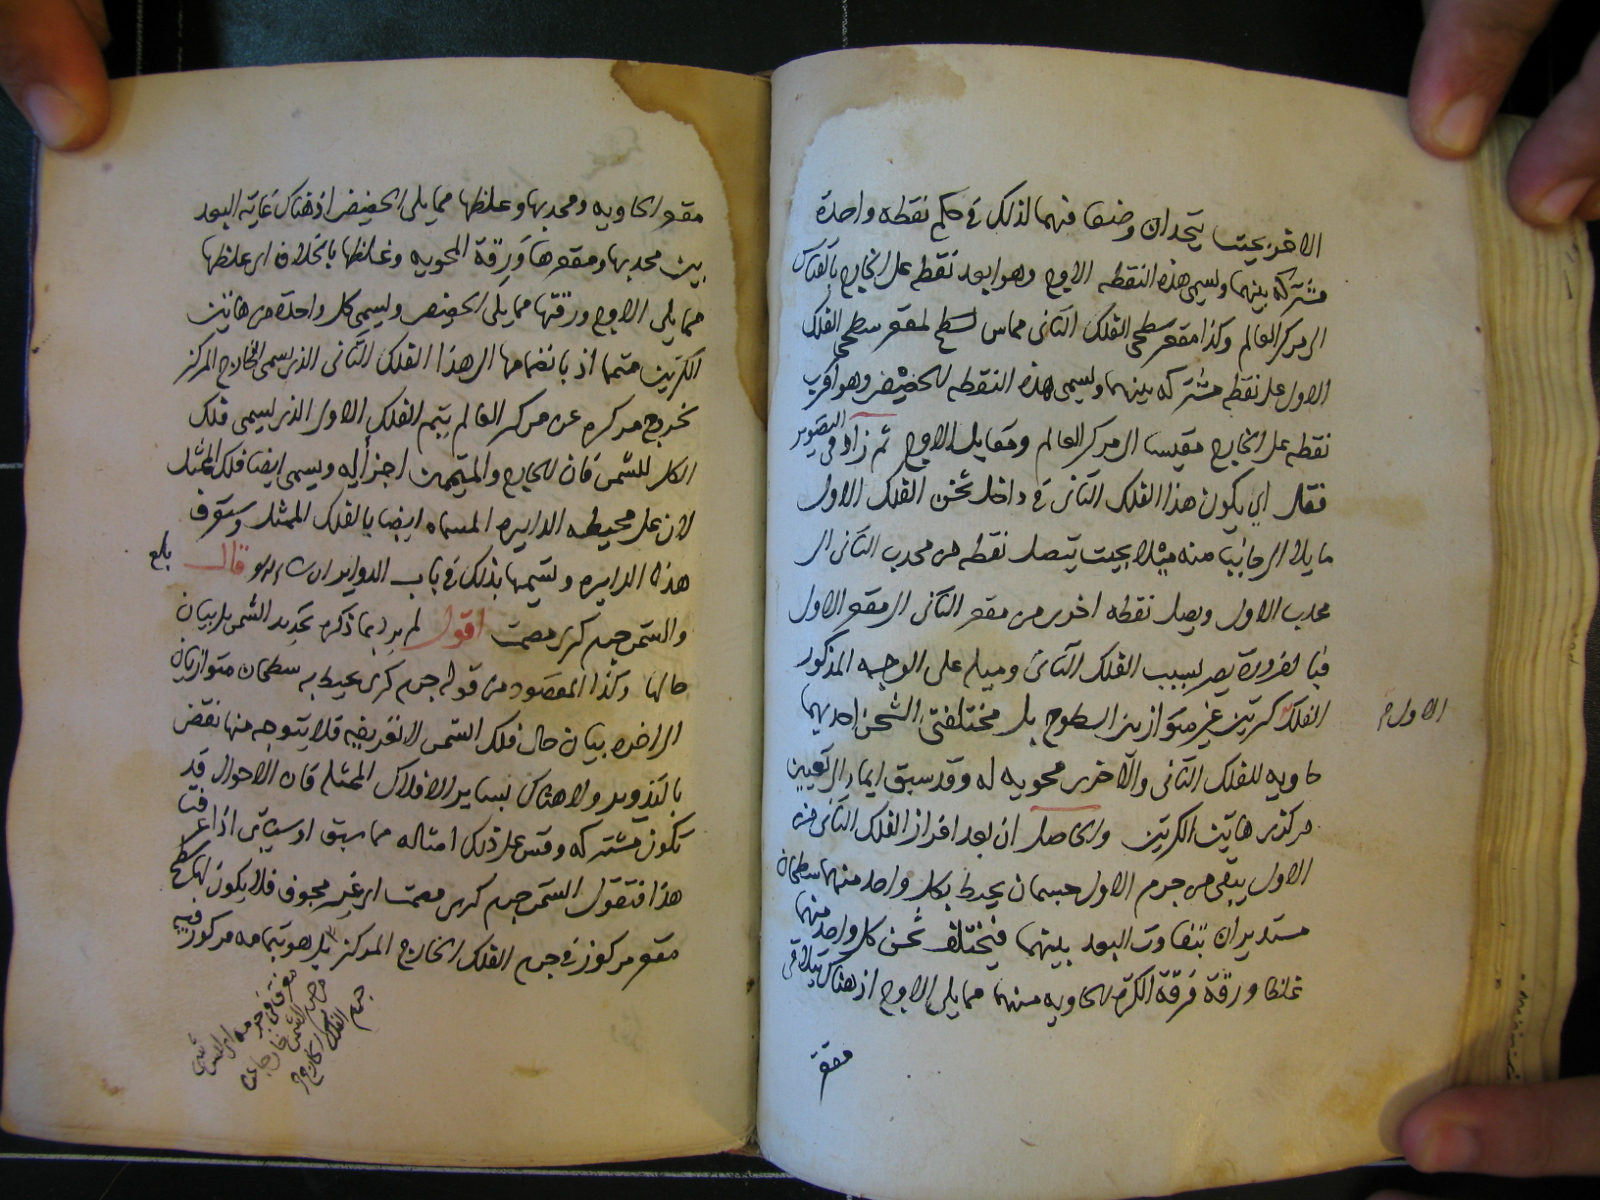 الاخر بحيث يتحدان وضعا فهما لذلك في حكم نقطه واحدة
مشتركه بينهما وليسمى هذه النقطه الاوج وهو ابعد نقطه على الخارج بالقياس
الى مركز العالم وكذا مقعر سطحى الفلك الثانى مماس لسطح لمقعر سطحى الفلك
الاول على نقطه مشتركه بينهما وليسمى هذه النقطه الحضيض وهو اقرب
نقطه على الخارج مقيسا الى مركز العالم ومقابل الاوج ثم زاد فى التصوير
فقال اي يكون هذا الفلك الثانى فى داخل ثخن الفلك الاول
مايلا الى جانب منه ميلا بحيث يتصل نقطه من محدب الثانى الى
محدب الاول ويصل نقطه اخرى من مقعر الثانى الى مقعر الاول
فبالضرورة يصير بسبب الفلك الثانى وميله على الوجه المذكور
الفلك كرتين غير متوازيتى السطوح بل مختلفتى الثخن احديهما
الاول
حاويه للفلك الثانى والاخرى محويه له وقد سبق ايما الى تعيين
مركزى هاتين الكرتين والحاصل ان بعد افراز الفلك الثانى من
الاول يبقى من جرم الاول جسمان يحيط بكل واحد منهما سطحان
مستديران بتفاوت البعد بينهما فيختلف ثخن كل واحد منهما
غلظا ورقة فرقة الكرة الحاويه منهما مما يلى الاوج اذ هناك يتلاقى
مقعر
مقعر الحاويه ومحدبها وغلظها مما يلى الحضيض اذ هناك غاية البعد
بين محدبها ومقعرها ورقة المحويه وغلظها بالخلاف اى غلظها
مما يلى الاوج ورقتها مما يلى الحضيض وليسمى كل واحدة من هاتين
الكرتين متمما اذ بانضمامها الى هذا الفلك الثانى الذى يسمى الخارج المركز
لخروج مركزه عن مركز العالم يتم الفلك الاول الذى ليسمى فلك
الكلى للشمس فان الخارج والمتممين اجزأ له ويسمى ايضا فلك الممثل
لان على محيطه الدايره المسماه ايضا بالفلك الممثل وستعرف
هذه الدايره وتسميتها بذلك فى باب الدواير ان شاء الله قال
بلغ
والشمس جرم كرى مصمت اقول لم يرد بما ذكره تحديد الشمس بل بيان
حالها وكذا المقصود من قوله جرم كرى يحيط به سطحان متوازيان
الى اخره بيان حال فلك الشمس لا تعريفه فلا يتوجه منها نقض
بالتدوير ولا هناك بساير الافلاك الممثله فان الاحوال قد
تكون مشتركه وقس على ذلك امثاله مما سبق او سياتى اذا عرفت
هذا فنقول الشمس جرم كرى مصمت اى غير مجوف فلا يكون لها سطح
مقعر مركوز فى جرم الفلك الخارج المركز بل هو بتمامه مركوز فيه